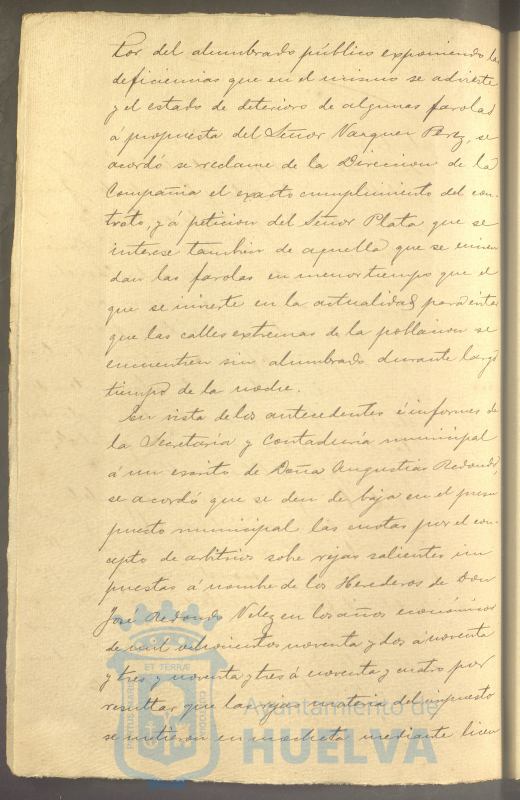 tor del alumbrado público exponiendo las
deficiencias que en el mismo se advierte
y el estado de deterioro de algunas farolas
á propuesta del Señor Vazquez Perez, se
acordó se reclame de la Direccion de la
Compañia el exacto cumplimiento del con-
trato, y á peticion del Señor Plata que se
interese tambien de aquella que se encien
dan las farolas en menor tiempo que el
que se invierte en la actualidad para evitar
que las calles extremas de la poblacion se
encuentren sin alumbrado durante largo
tiempo de la noche.
En vista de los antecedentes é informes de
la Secretaría y Contaduría municipal
á un escrito de Doña Angustias Redondo,
se acordó que se den de baja en el presu
puesto municipal las cuotas por el con-
cepto de arbitrios sobre rejas salientes im
puestas á nombre de los Herederos de Don
José Redondo Velez en los años económicos
de mil ochocientos noventa y dos á noventa
y tres y noventa y tres á noventa y cuatro por
resultar que las rejas materia del impuesto
se metieron en mocheta mediante licen
PORTUS MARIS ET TERRÆ CUSTODIA
Ayuntamiento de
HUELVA